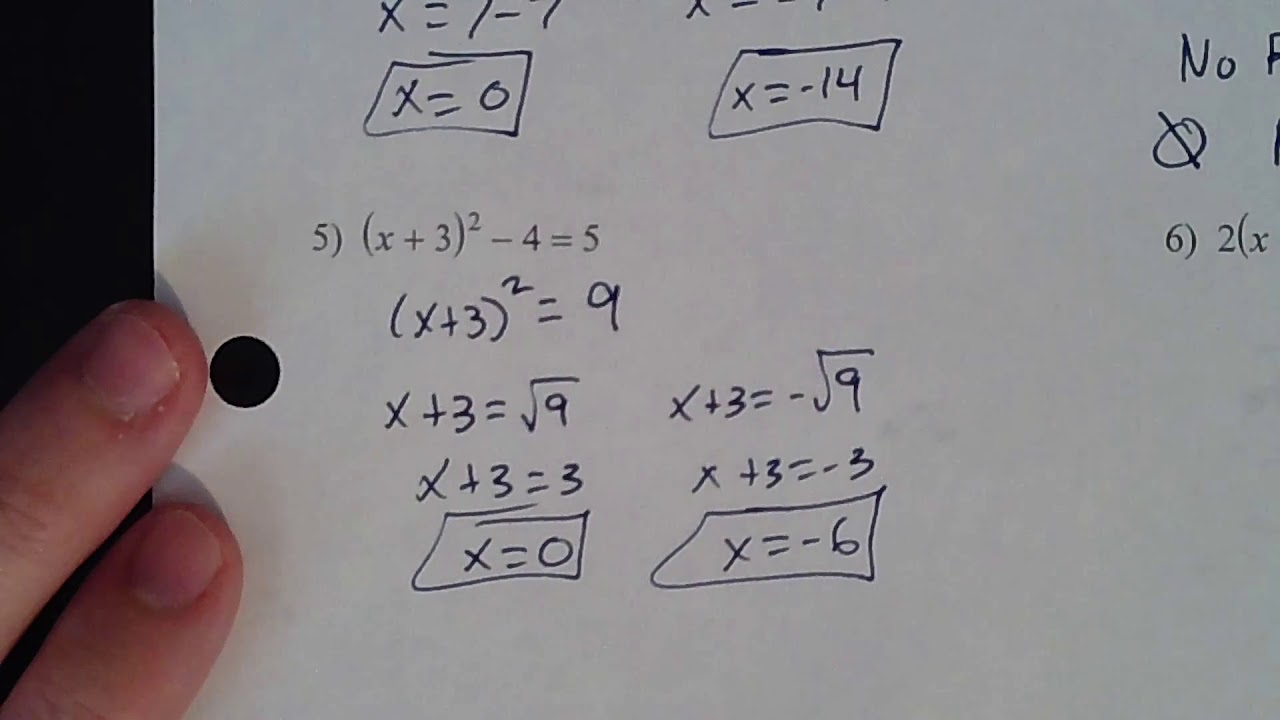 x = 7-7
x=0 x=-14 No
5) (x + 3)² − 4 = 5 6) 2(x
(x+3)² = 9
x+3=√9 x+3=-√9
x+3=3 x+3=-3
x=0 x=-6